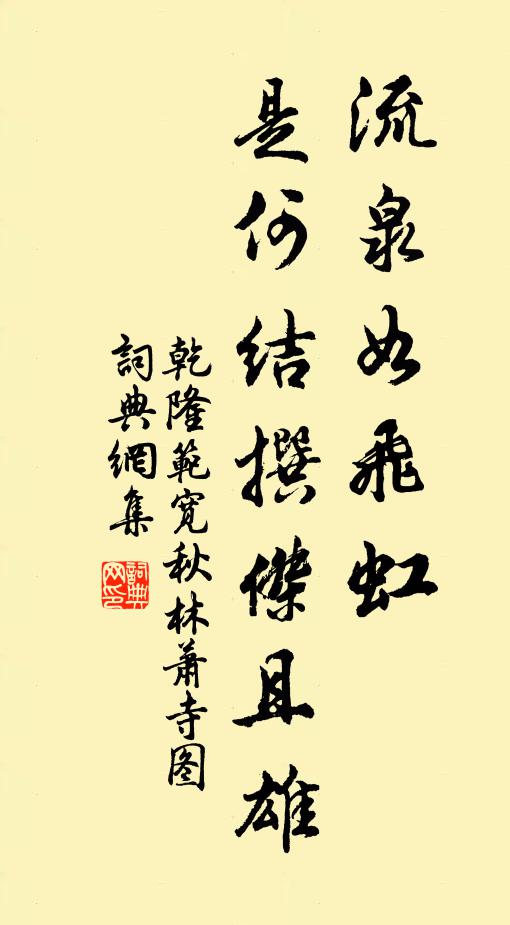 流泉如飛虹
是何結撰傑且雄
乾隆範寬秋林蕭寺图
詞典網集
詞典
网印